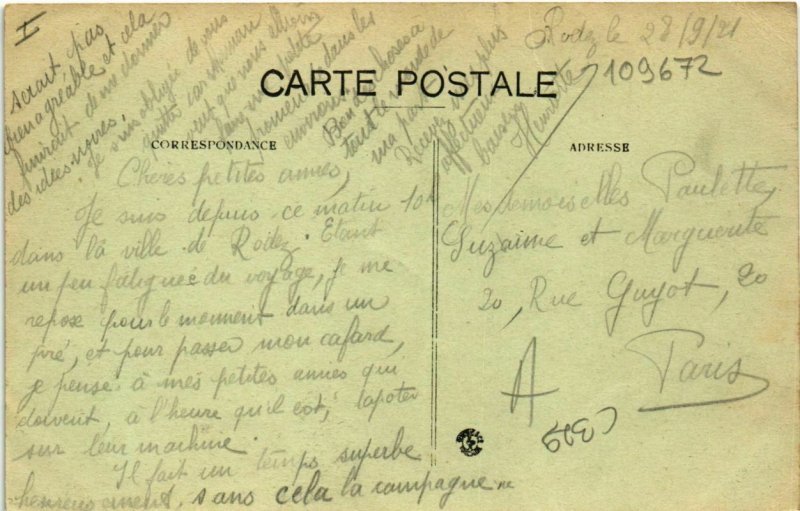 I
Rodez le 28/9/21
109672
CARTE POSTALE
CORRESPONDANCE
ADRESSE
Chères petites amies,
Je suis depuis ce matin 10h
dans la ville de Rodez. Etant
un peu fatiguée du voyage, je me
repose pour le momment dans un
pré, et pour passer mon cafard,
je pense à mes petites amies qui
doivent, à l'heure qu'il est, tapoter
sur leur machine.
Il fait un temps superbe
heureusement, sans cela la campagne ne
serait pas
bien agréable et cela
finirait de me donner
des idées noires.
Je suis obligée de vous
quitter car maman
veut que nous allions
faire une petite
promenade dans les
environs.
Bien des choses à
tout le monde de
ma part.
Recevez mes plus
affectueux
baisers
Henriette
Mesdemoiselles Paulette,
Suzanne et Marguerite
20, Rue Guyot, 20
Paris
A